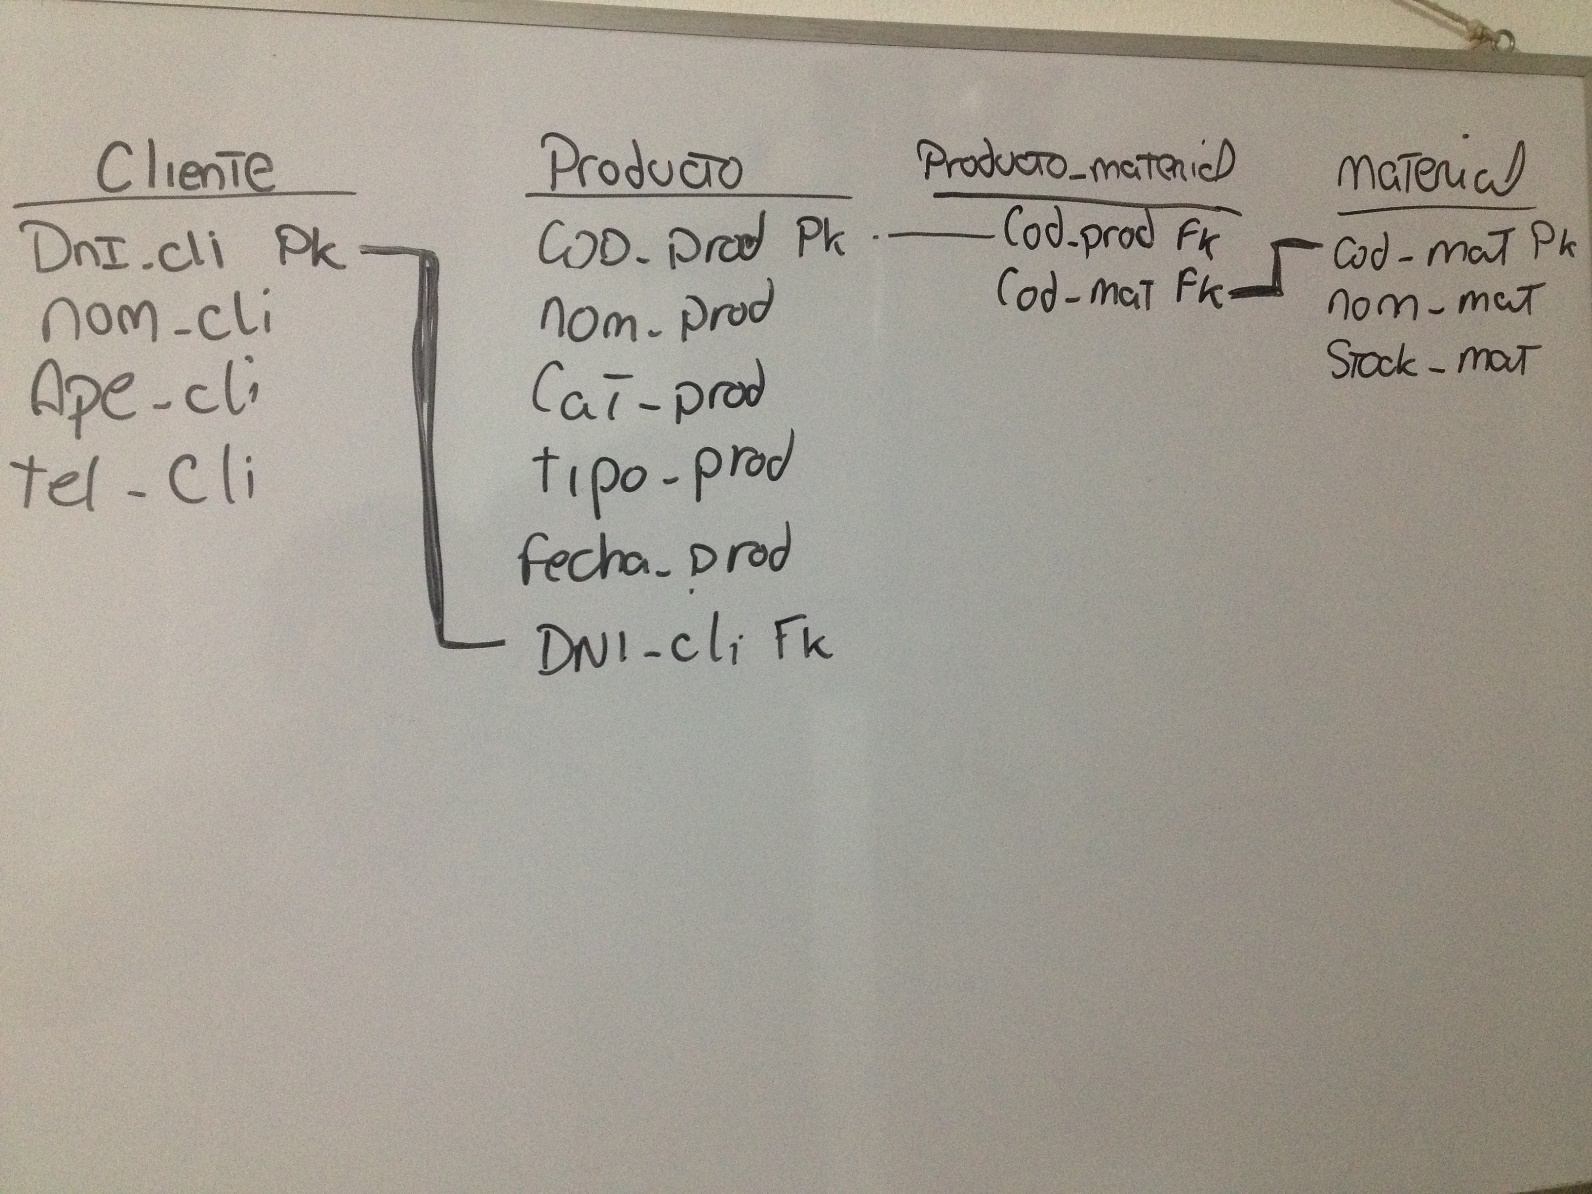 Cliente
DnI-cli Pk
nom-cli
Ape-cli
tel-Cli
Producto
COD-prod Pk
nom-prod
Cat-prod
tipo-prod
fecha-prod
DNI-cli Fk
Producto_material
Cod-prod Fk
Cod-mat Fk
material
Cod-mat Pk
nom-mat
Stock-mat